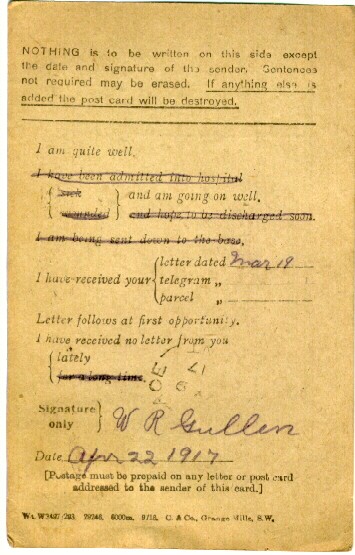 NOTHING is to be written on this side except
the date and signature of the sender. Sentences
not required may be erased. If anything else is
added the post card will be destroyed.
I am quite well.
I have been admitted into hospital
sick
and am going on well.
wounded
and hope to be discharged soon.
I am being sent down to the base.
letter dated Mar 19
I have received your
telegram „
parcel „
Letter follows at first opportunity.
I have received no letter from you
lately
for a long time.
Signature
only
W R Gullen
Date Apr 22 1917
[Postage must be prepaid on any letter or post card
addressed to the sender of this card.]
Wt. W3497/293. 29246. 6000m. 9/16. C. & Co., Grange Mills, S.W.